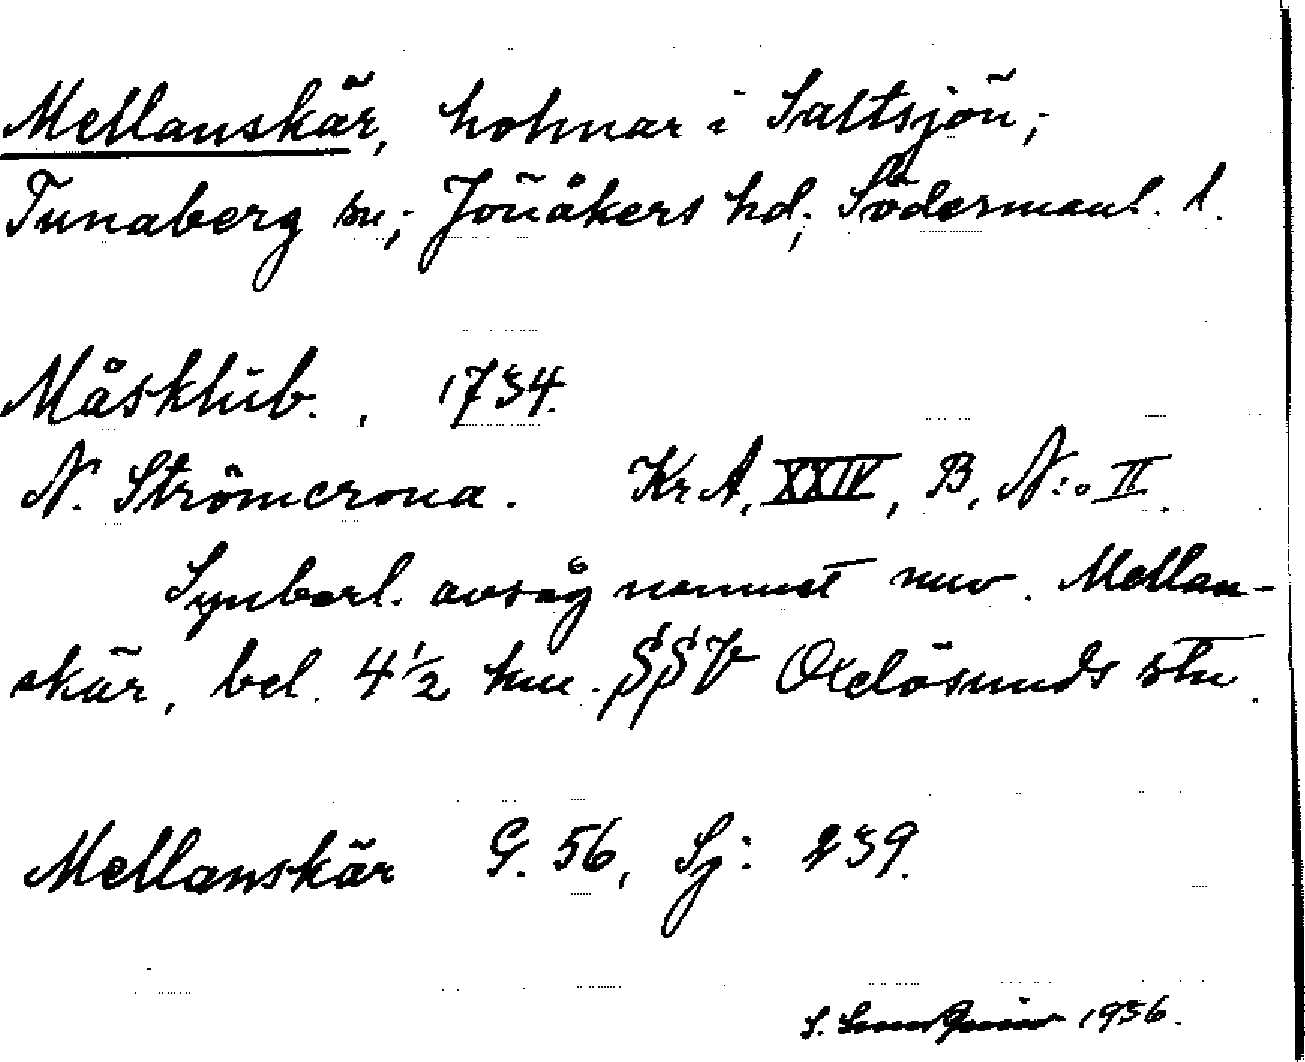 Mellanskär, holmar i Saltsjön;
Tunaberg sn; Jönåkers hd; Södermanl. l.
Måsklub. . 1734.
N. Strömcrona. Kr A, XXIV, B, N:o II.
Synbarl. avsåg namnet nuv. Mellan-
skär, bel. 4 1/2 km. SSV Oxelösunds stn.
Mellanskär G. 56, Sj: 239.
S. 1936.